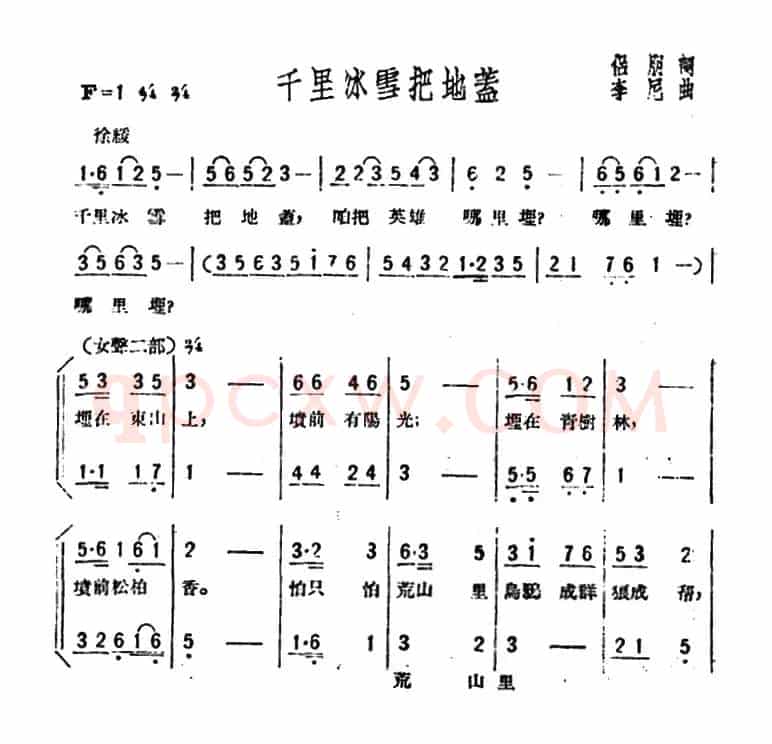 千里冰雪把地蓋
F=1 3/4 2/4
侣朋詞
李尼曲
徐綏
1·6 1 2 5 — | 5 6 5 2 3 — | 2 2 3 5 4 3 | 6 2 5 — | 6 5 6 1 2 — |
千里冰 雪 把 地 蓋, 咱把 英雄 哪里埋? 哪 里 埋?
3 5 6 3 5 — | (3 5 6 3 5 1 7 6 | 5 4 3 2 1·2 3 5 | 2 1 7 6 1 —)
哪 里 埋?
(女聲二部) 2/4
5 3 3 5 | 3 — | 6 6 4 6 | 5 — | 5·6 1 2 | 3 —
埋在 東山 上, 墳前 有陽 光; 埋在 青樹 林,
1·1 1 7 | 1 — | 4 4 2 4 | 3 — | 5·5 6 7 | 1 —
5·6 1 6 1 | 2 — | 3·2 3 | 6·3 5 | 3 1 7 6 | 5 3 2
墳前松柏 香。 怕只 怕 荒山 里 烏鴉 成群 狼成 帮,
3 2 6 1 6 | 5 — | 1·6 1 | 3 2 | 3 — | 2 1 5
荒 山 里
qpcxw.COM